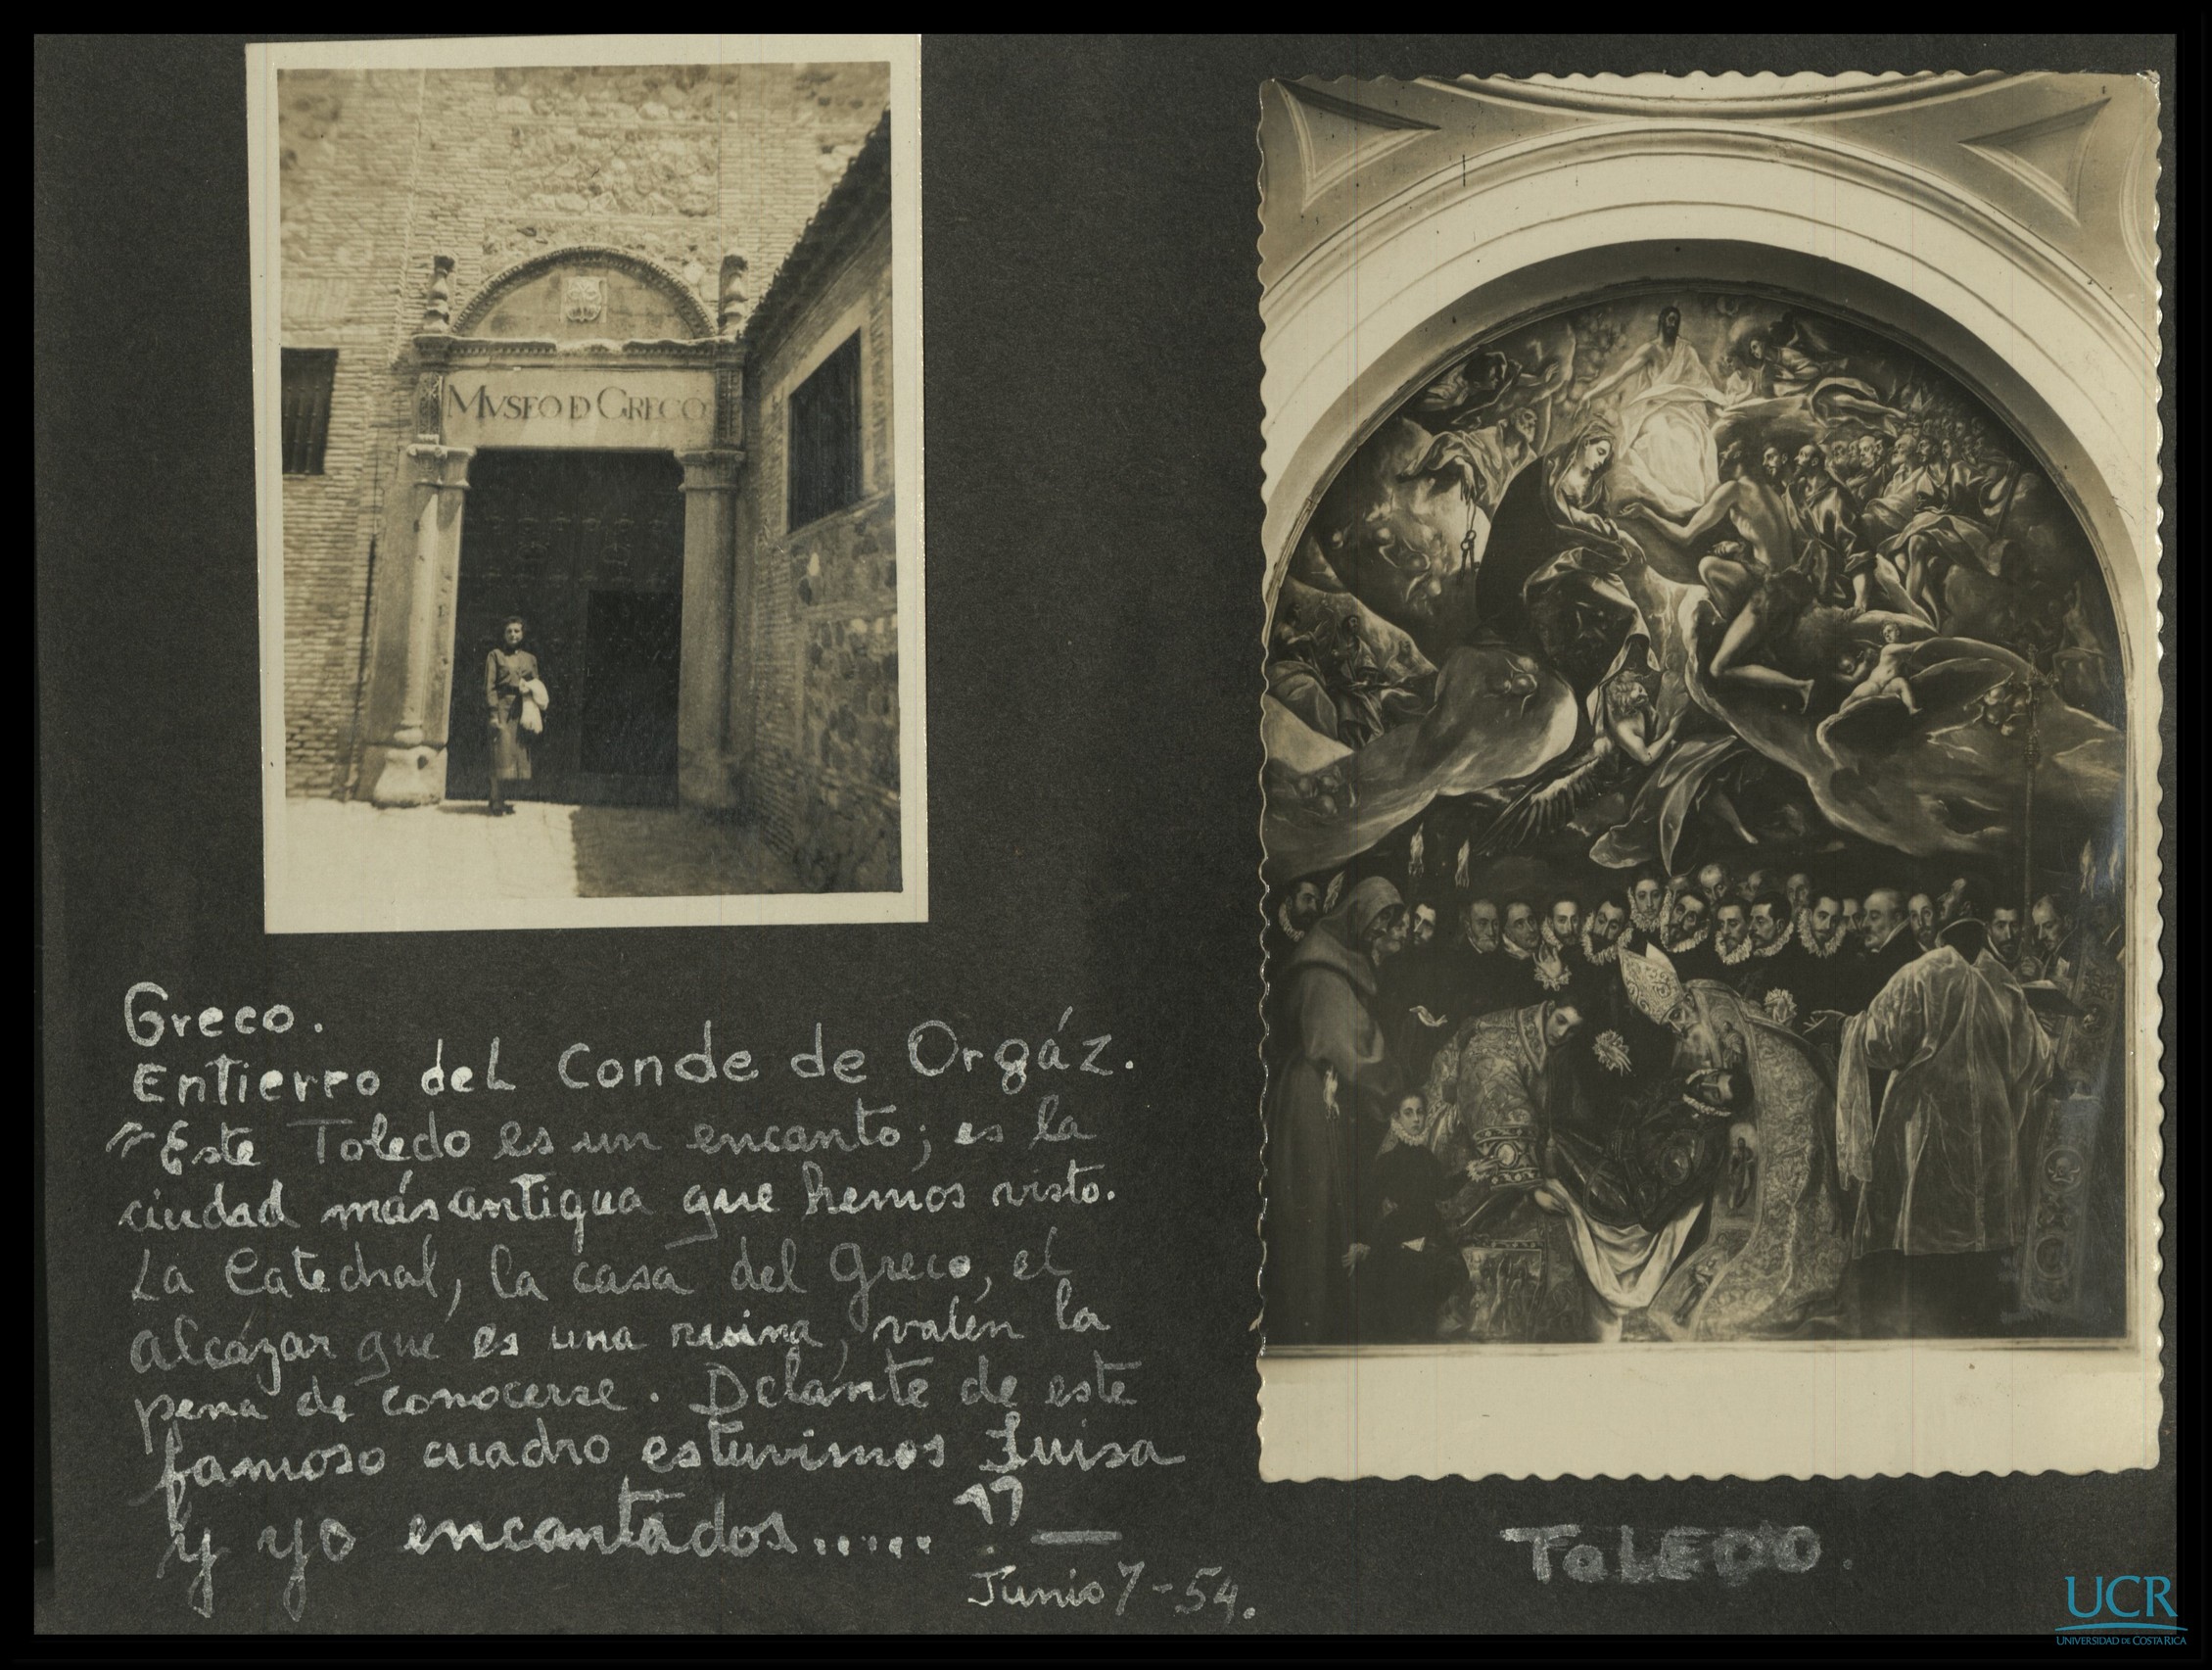 MVSEO D GRECO
Greco.
Entierro del Conde de Orgáz.
"Este Toledo es un encanto; es la
ciudad más antigua que hemos visto.
La Catedral, la casa del Greco, el
alcázar que es una ruina, valen la
pena de conocerse. Delante de este
famoso cuadro estuvimos Luisa
y yo encantados....."
Junio 7-54.
TOLEDO.
UCR
UNIVERSIDAD DE COSTA RICA